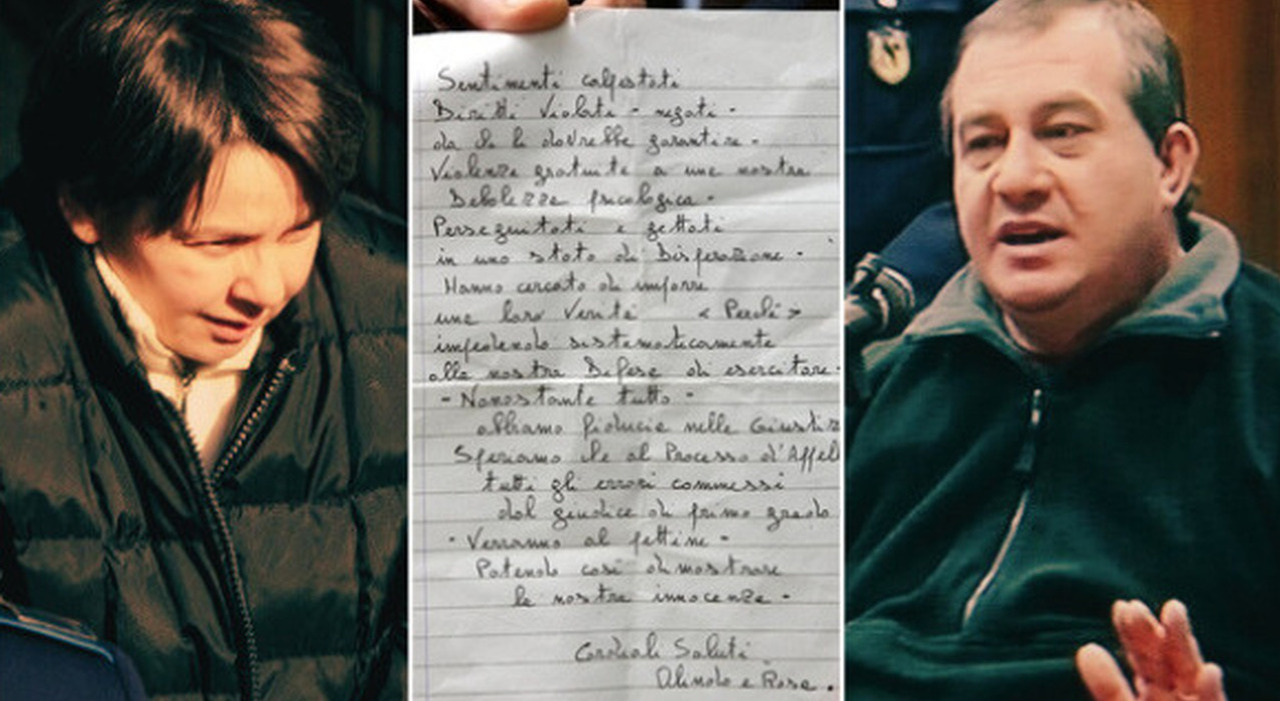 Sentimenti calpestati
Diritti Violati - negati -
da chi li dovrebbe garantire -
Violenze gratuite a una nostra
Debolezza psicologica -
Perseguitati e gettati
in uno stato di Disperazione -
Hanno cercato di imporre
una loro Verità « Perché »
impedendo sistematicamente
alla nostra Difesa di esercitare -
- Nonostante tutto -
abbiamo fiducia nella Giustiz
Speriamo che al Processo d'Appel
tutti gli errori commessi
dal giudice di primo grado
- Verranno al pettine -
Potendo così dimostrare
la nostra innocenza -
Cordiali Saluti
Olindo e Rosa.